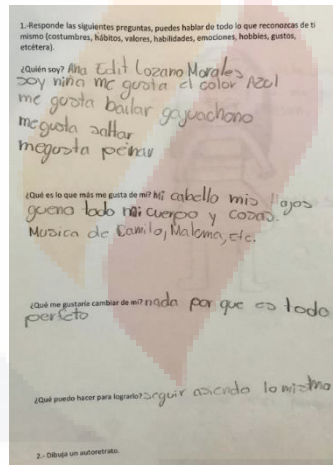 1.-Responde las siguientes preguntas, puedes hablar de todo lo que reconozcas de ti
mismo (costumbres, hábitos, valores, habilidades, emociones, hobbies, gustos,
etcétera).
¿Quién soy? Ana Edit Lozano Morales
soy niña me gusta el color Azul
me gusta bailar
me gusta saltar
megusta peinar
¿Qué es lo que más me gusta de mi? Mi cabello mis ojos
todo mi cuerpo y cosas.
Musica de Camilo, Maluma, etc.
¿Qué me gustaría cambiar de mi? nada por que es todo
perfeto
¿Qué puedo hacer para lograrlo? seguir asiendo lo mismo
2.- Dibuja un autoretrato.